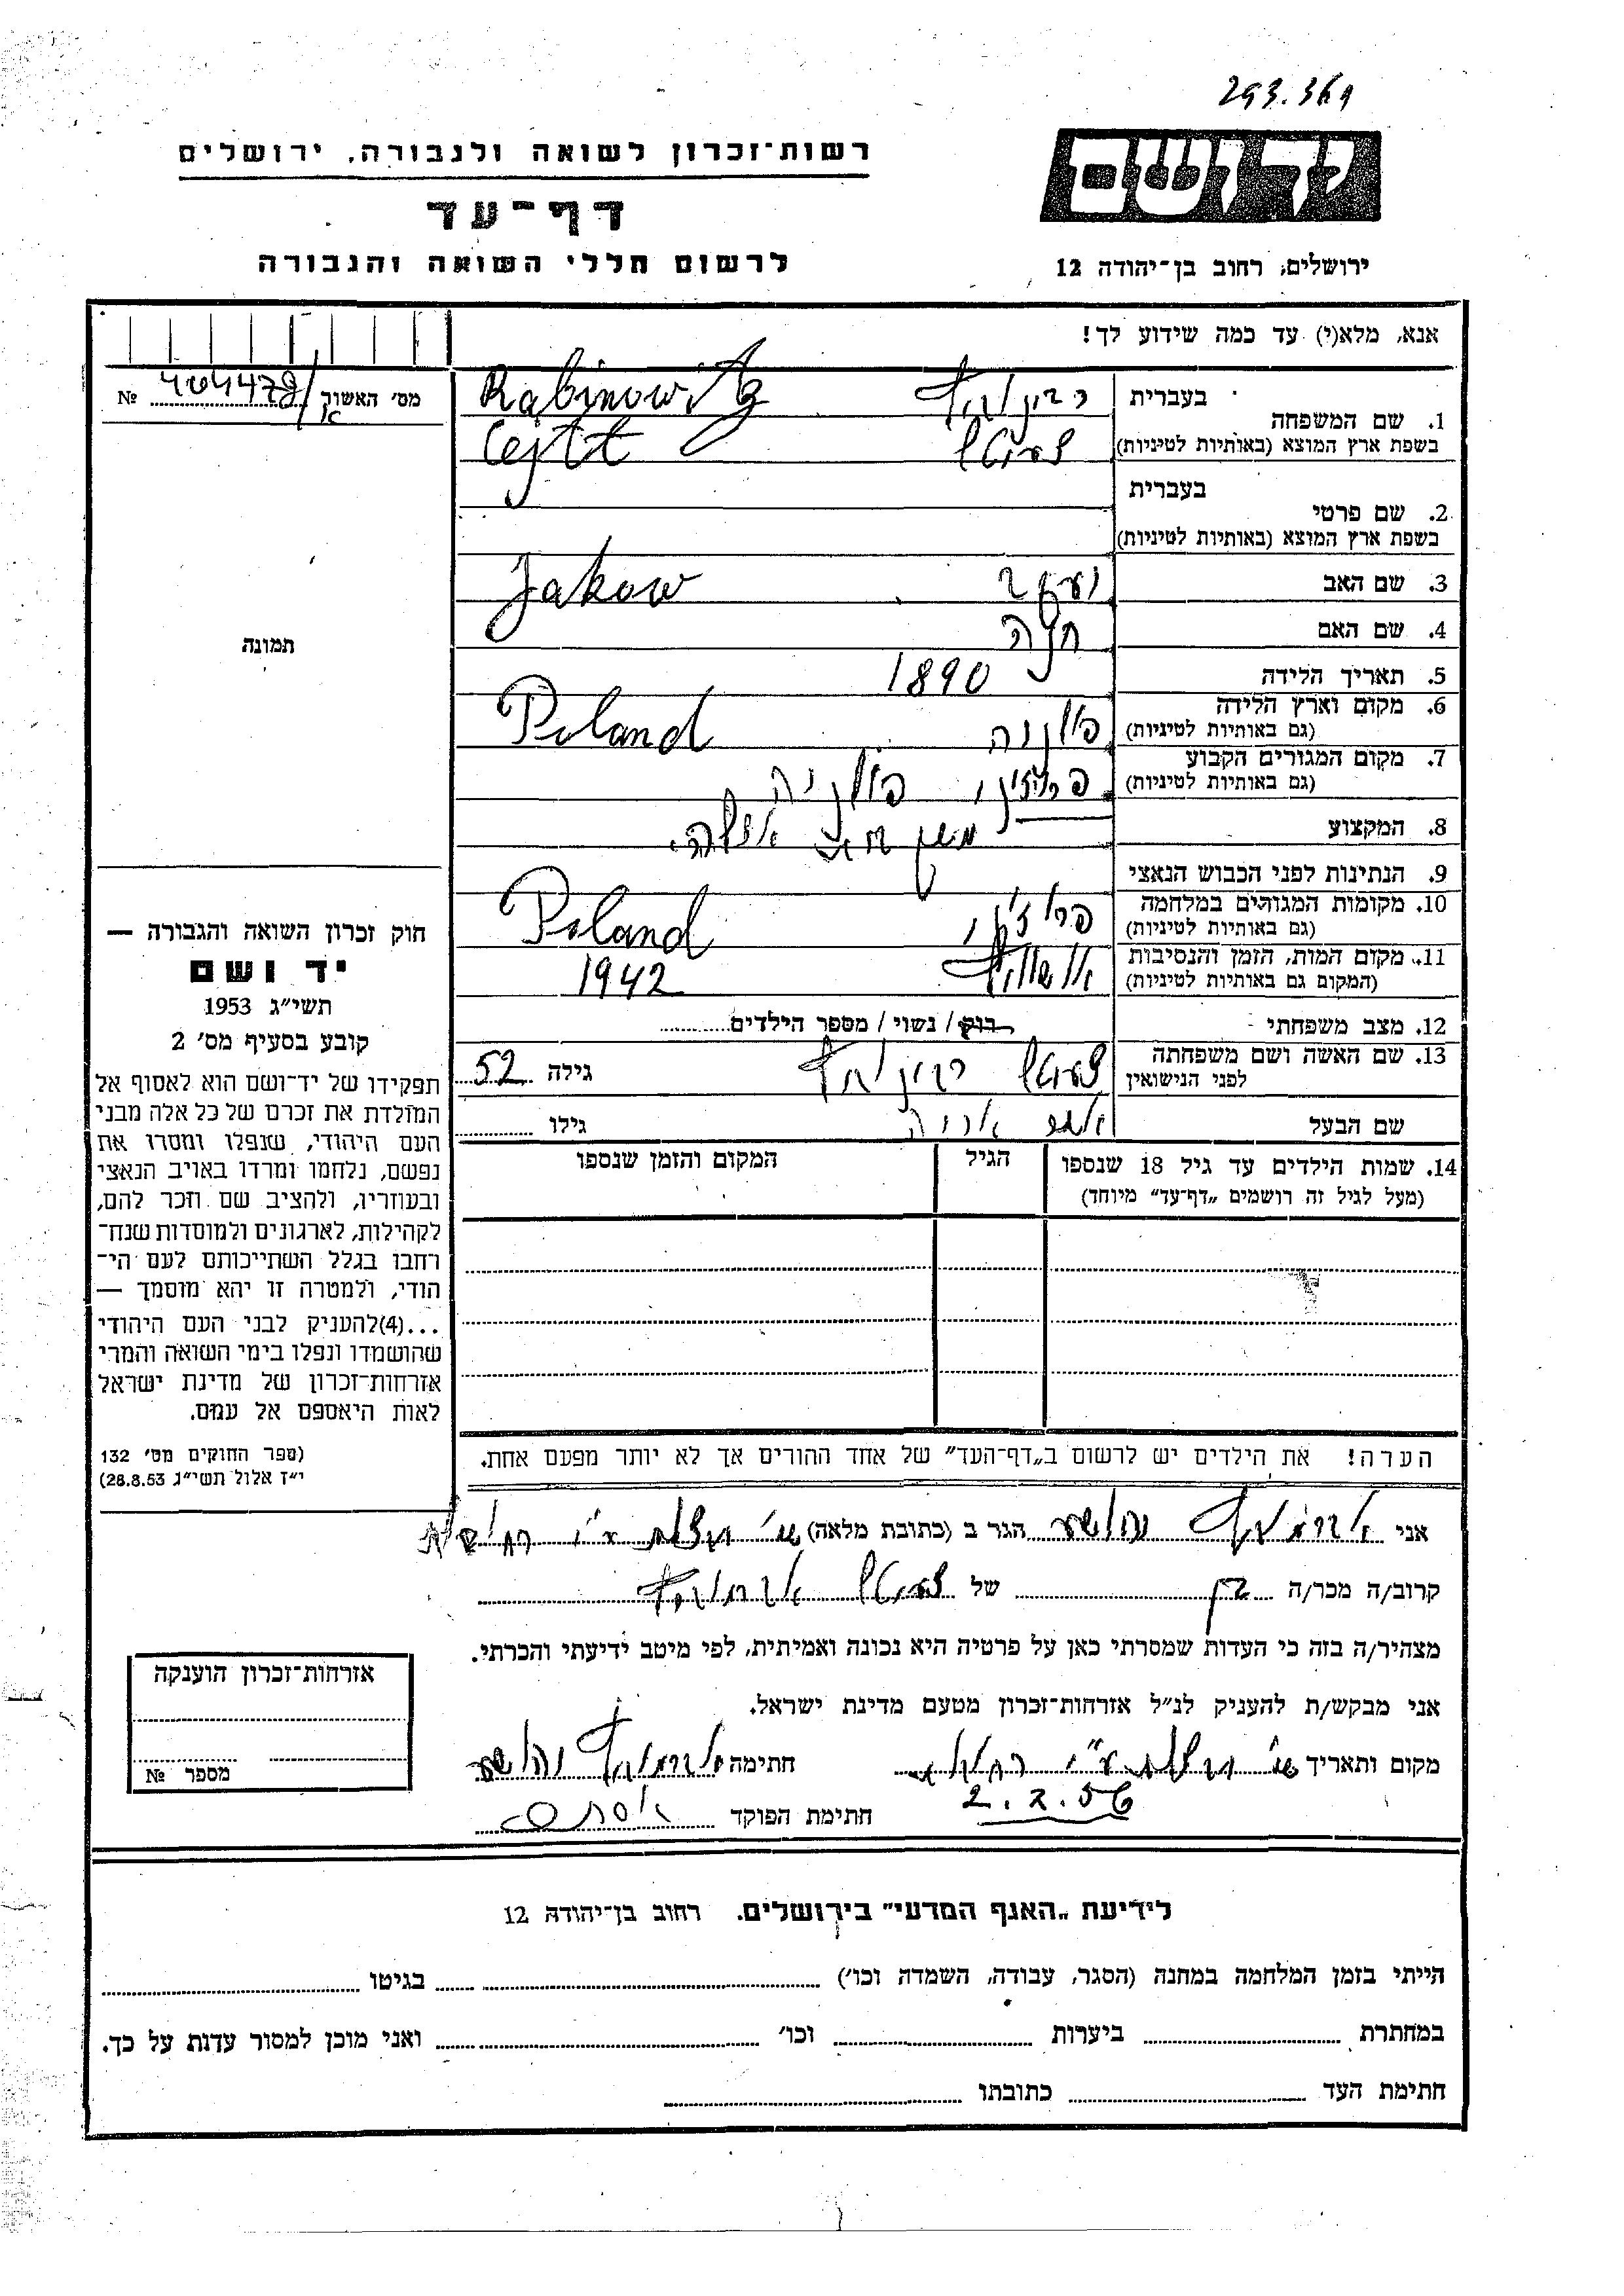 293.369
רשות־זכרון לשואה ולגבורה, ירושלים
יד ושם
דף־עד
לרשום חללי השואה והגבורה
ירושלים, רחוב בן־יהודה 12
אנא, מלא(י) עד כמה שידוע לך!
מס׳ האשוך № 404478/א
1. שם המשפחה בעברית רבינוביץ Rabinowitz
בשפת ארץ המוצא (באותיות לטיניות) Cejtt
2. שם פרטי בעברית
בשפת ארץ המוצא (באותיות לטיניות)
3. שם האב יעקב Jakow
4. שם האם חנה
5. תאריך הלידה 1890
6. מקום וארץ הלידה (גם באותיות לטיניות) פולניה Poland
7. מקום המגורים הקבוע (גם באותיות לטיניות) פולניה
8. המקצוע
9. הנתינות לפני הכבוש הנאצי
10. מקומות המגורים במלחמה (גם באותיות לטיניות) Poland
11. מקום המות, הזמן והנסיבות (המקום גם באותיות לטיניות) 1942
12. מצב משפחתי רוק / נשוי / מספר הילדים
13. שם האשה ושם משפחתה לפני הנישואין רבינוביץ גילה 52
שם הבעל גילו
14. שמות הילדים עד גיל 18 שנספו
(מעל לגיל זה רושמים „דף־עד״ מיוחד)
הגיל
המקום והזמן שנספו
הערה! את הילדים יש לרשום ב„דף־העד״ של אחד ההורים אך לא יותר מפעם אחת.
תמונה
חוק זכרון השואה והגבורה —
יד ושם
תשי״ג 1953
קובע בסעיף מס׳ 2
תפקידו של יד־ושם הוא לאסוף אל
המולדת את זכרם של כל אלה מבני
העם היהודי, שנפלו ומסרו את
נפשם, נלחמו ומרדו באויב הנאצי
ובעוזריו, ולהציב שם וזכר להם,
לקהילות, לארגונים ולמוסדות שנח־
רחבו בגלל השתייכותם לעם הי־
הודי, ולמטרה זו יהא מוסמך —
...(4)להעניק לבני העם היהודי
שהושמדו ונפלו בימי השואה והמרי
אזרחות־זכרון של מדינת ישראל
לאות היאספם אל עמם.
(ספר החוקים מס׳ 132
י״ז אלול תשי״ג 28.8.53)
אני יהושע הגר ב (כתובת מלאה)
קרוב/ה מכר/ה בן של
מצהיר/ה בזה כי העדות שמסרתי כאן על פרטיה היא נכונה ואמיתית, לפי מיטב ידיעתי והכרתי.
אני מבקש/ת להעניק לנ״ל אזרחות־זכרון מטעם מדינת ישראל.
מקום ותאריך חתימה יהושע
2.2.56
חתימת הפוקד
אזרחות־זכרון הוענקה
מספר №
לידיעת „האגף המדעי״ בירושלים. רחוב בן־יהודה 12
הייתי בזמן המלחמה במחנה (הסגר, עבודה, השמדה וכו׳) בגיטו
במחתרת ביערות וכו׳ ואני מוכן למסור עדות על כך.
חתימת העד כתובתו